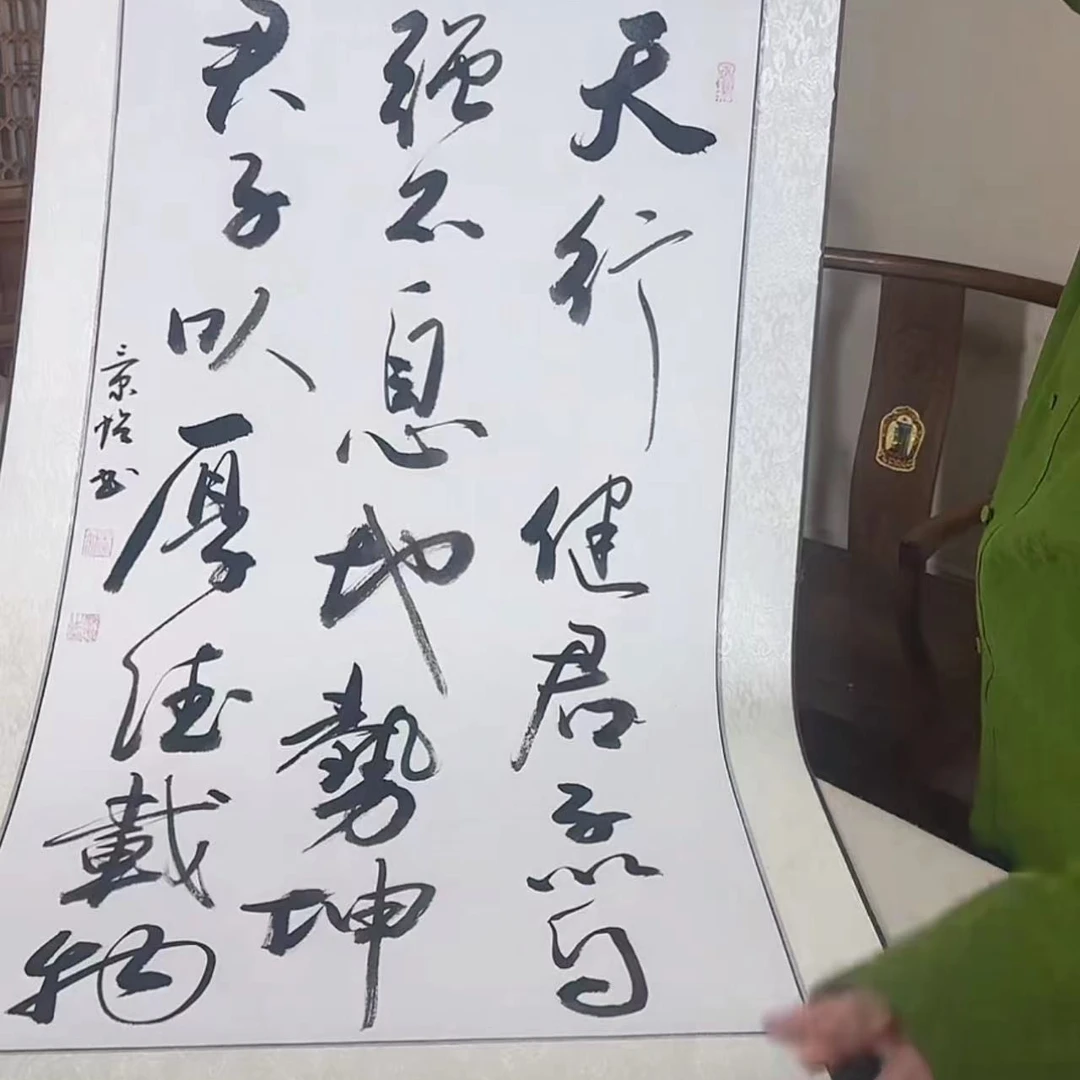 天行健君子以自
强不息地势坤
君子以厚德载物
景怡书